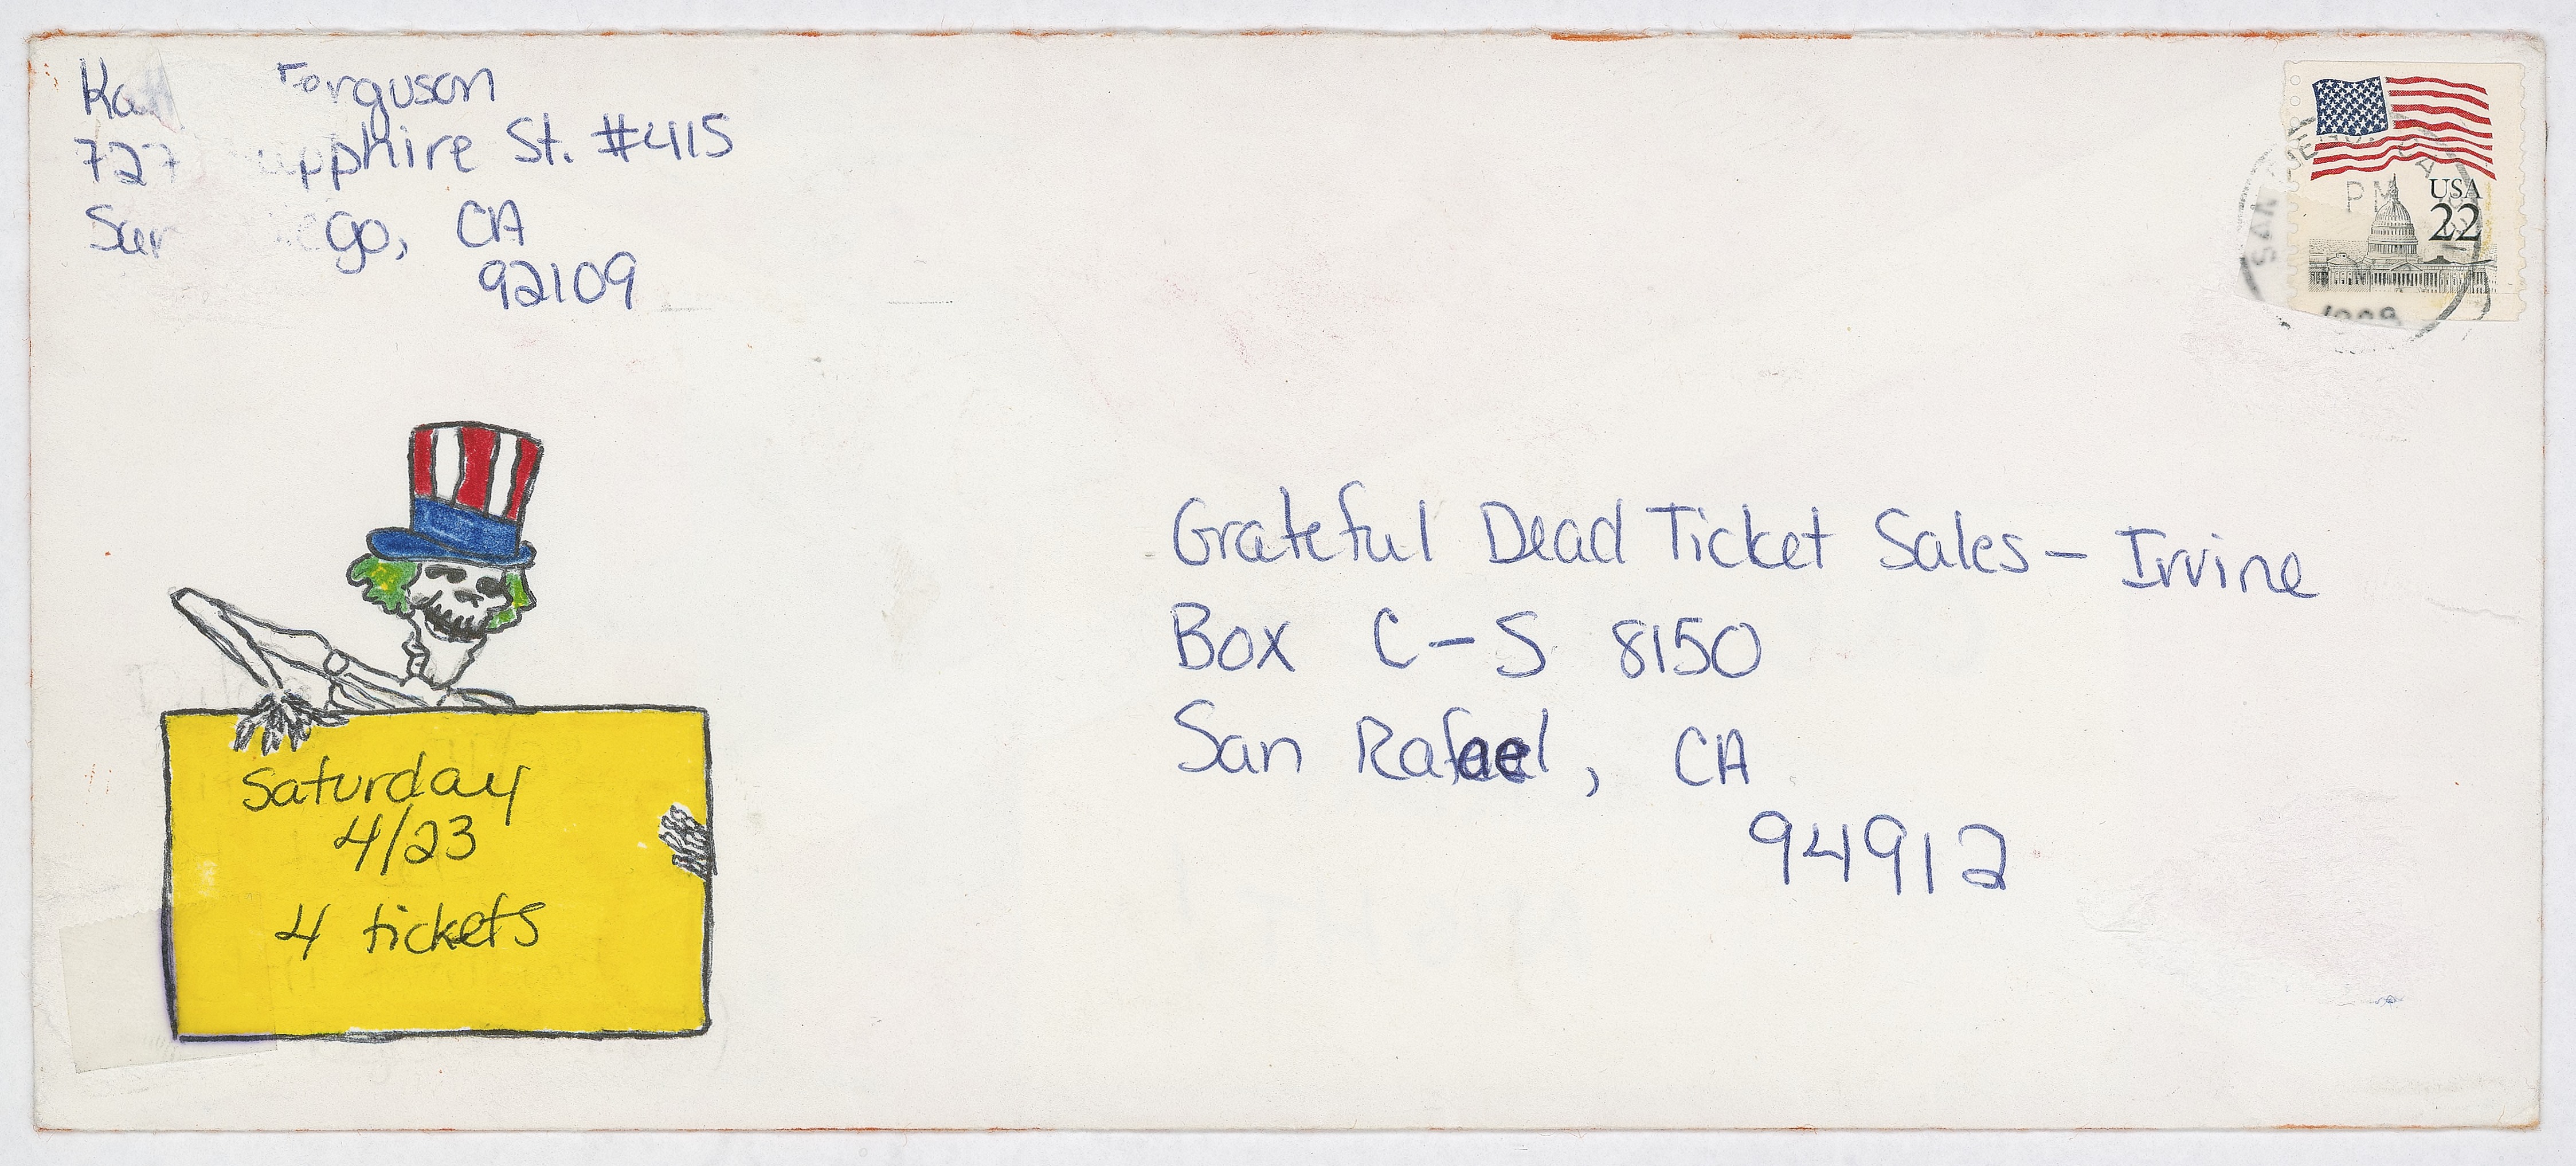 Ferguson
727 Sapphire St. #415
San Diego, CA
92109
USA
22
SAN DIEGO, CA
PM
1988
Grateful Dead Ticket Sales – Irvine
Box C-S 8150
San Rafael, CA
94912
Saturday
4/23
4 tickets